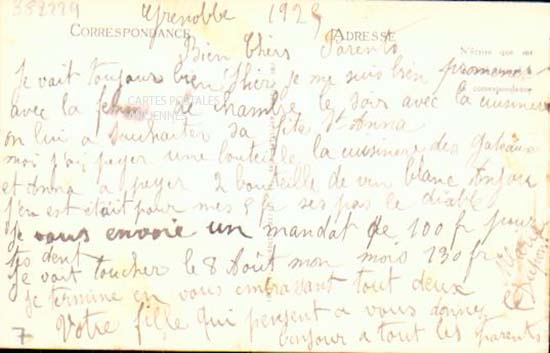 352779
Grenoble 1925
CORRESPONDANCE
ADRESSE
Bien Chers Parents
Je vait toujour bien hier je me suis bien promener
avec la de chambre le soir avec la cuisiniere
CARTES POSTALES
on lui a souhaiter sa fête St Anna
moi j'ai payer une bouteille la cuisiniere des Gateaux
et Anna a payer 2 bouteille de vin blanc Anjou
J'en est était pour mes 5 fr ses pas le diable
Je vous envoie un mandat de 100 fr pour
dent
Je vait toucher le 8 Août mon mois 130 fr
Je termine en vous embrassant tout deux
Votre fille qui pensent a vous donner
bonjour a tout les parents
7